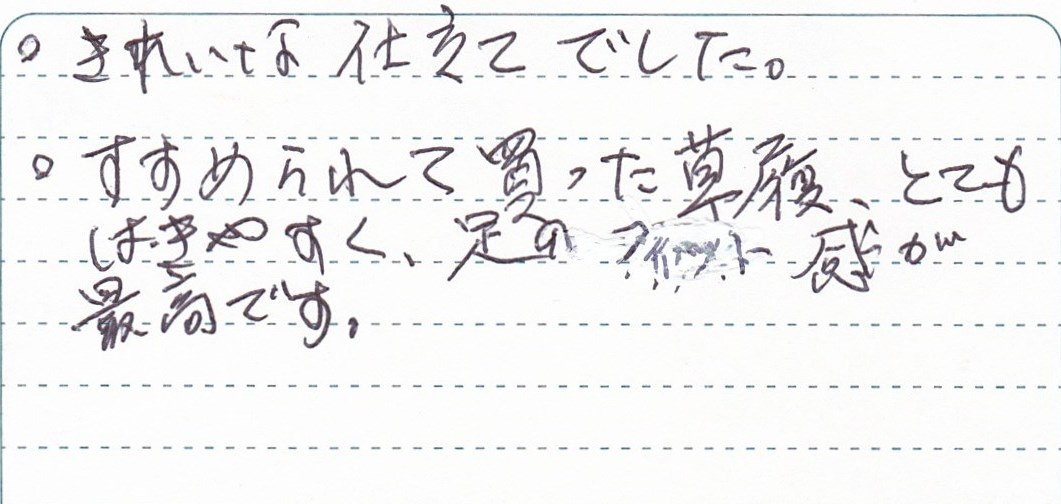 ○ きれいな 仕立て でした。
○ すすめられて買った草履、とても
はきやすく、足の フィット感が
最高です。